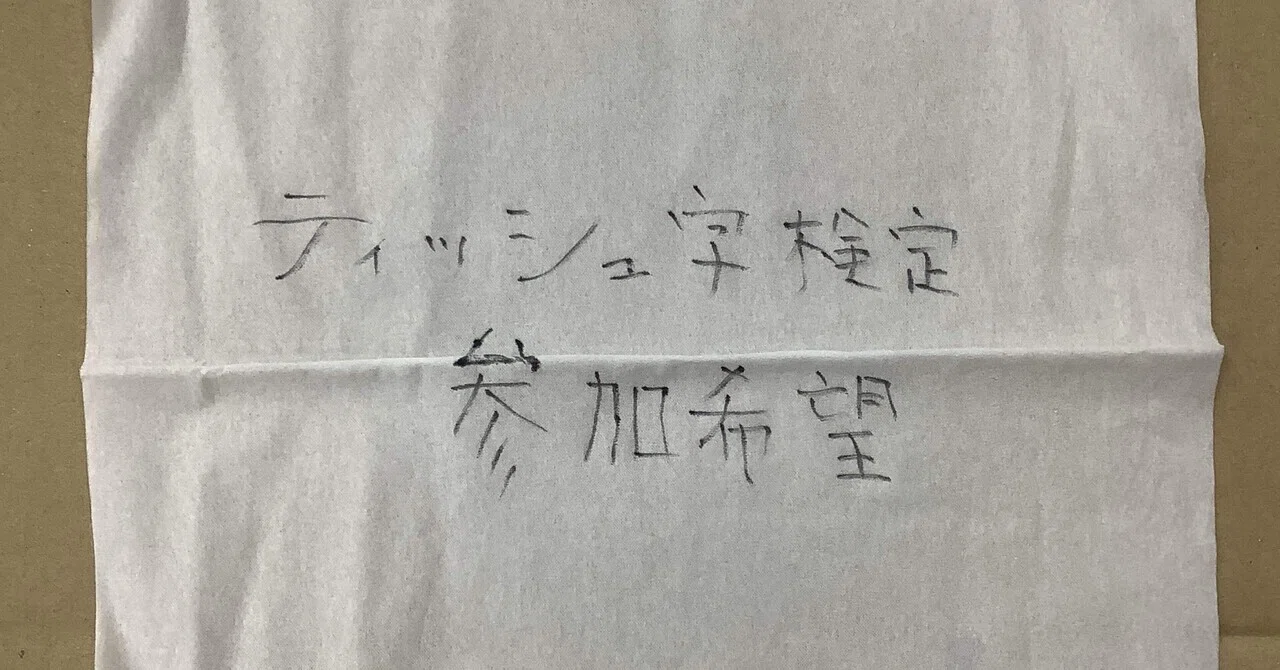 ティッシュ字検定
参加希望